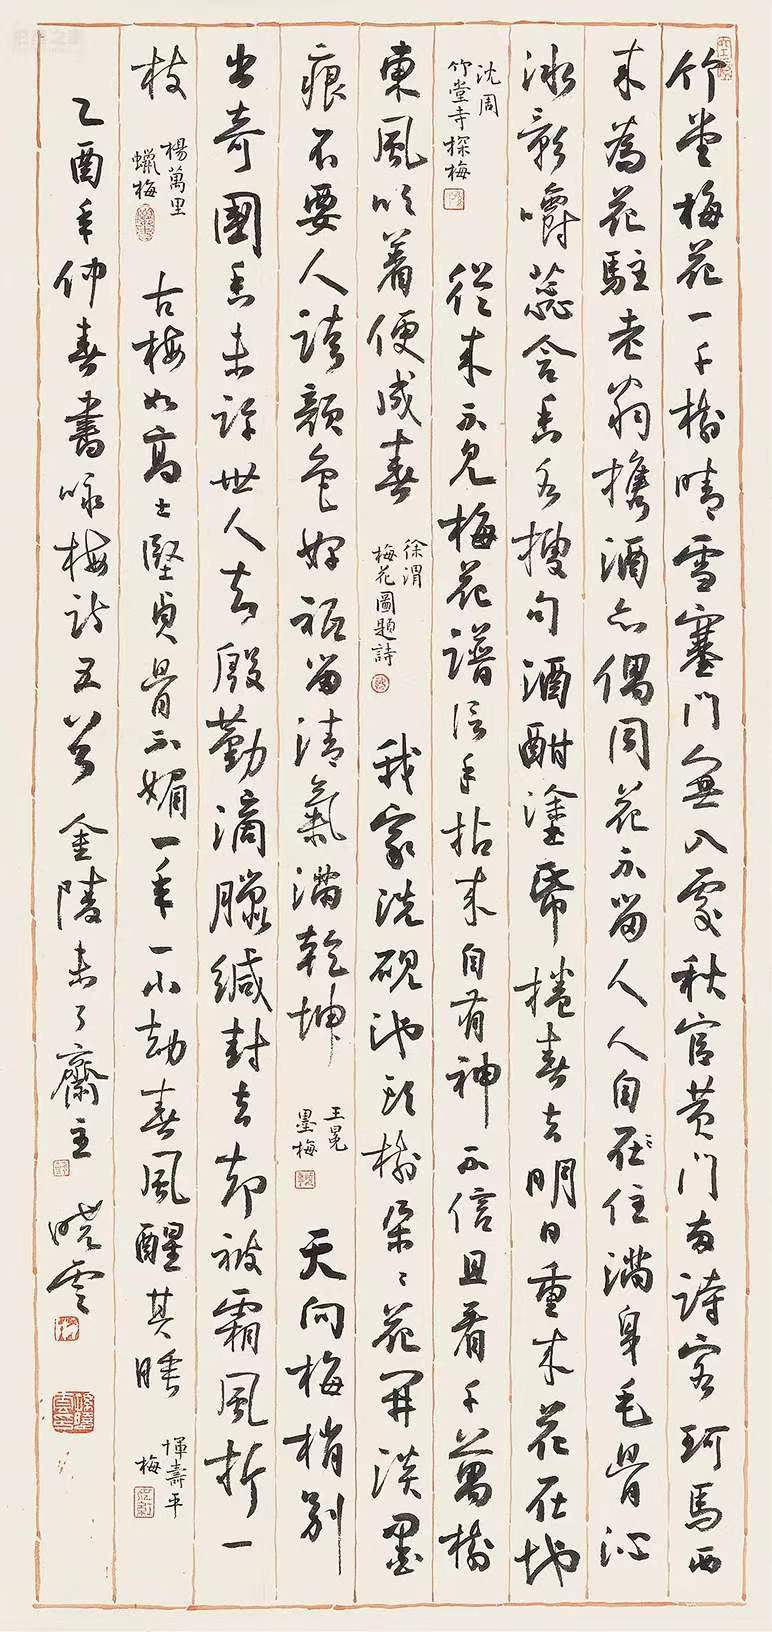 竹堂梅花一千樹晴雪塞門無入處秋官黃門兩詩客珂馬西
來為花駐老翁攜酒亦偶同花不留人人自在住滿身毛骨沁
冰影嚼蕊含香各搜句酒酣塗紙捲春去明日重來花在地
沈周
竹堂寺探梅
從來不見梅花譜信手拈來自有神不信且看千萬樹
東風吹著便成春
徐渭
梅花圖題詩
我家洗硯池頭樹朵〻花開淡墨
痕不要人誇顏色好祇留清氣滿乾坤
王冕
墨梅
天向梅梢別
出奇國香未許世人知殷勤滴臘緘封去却被霜風折一
枝
楊萬里
蠟梅
古梅如高士堅貞骨不媚一年一小劫春風醒其睡
惲壽平
梅
乙酉年仲春書咏梅詩五首金陵未了齋主
曉雲